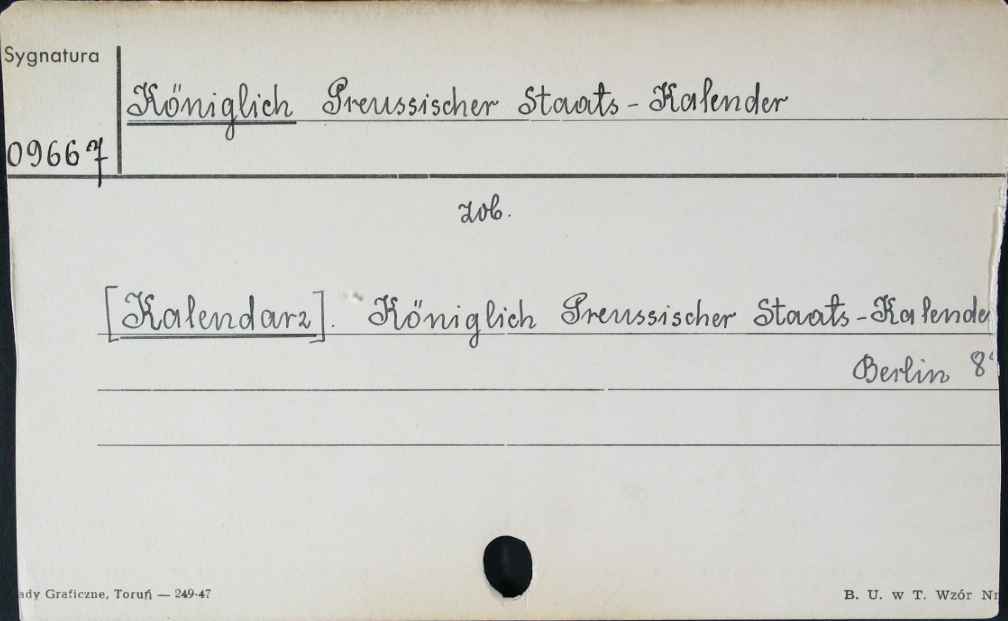 Sygnatura
Königlich Preussischer Staats-Kalender
09667
zob.
[Kalendarz]. Königlich Preussischer Staats-Kalende
Berlin 8°
ady Graficzne, Toruń — 249-47
B. U. w T. Wzór Nr